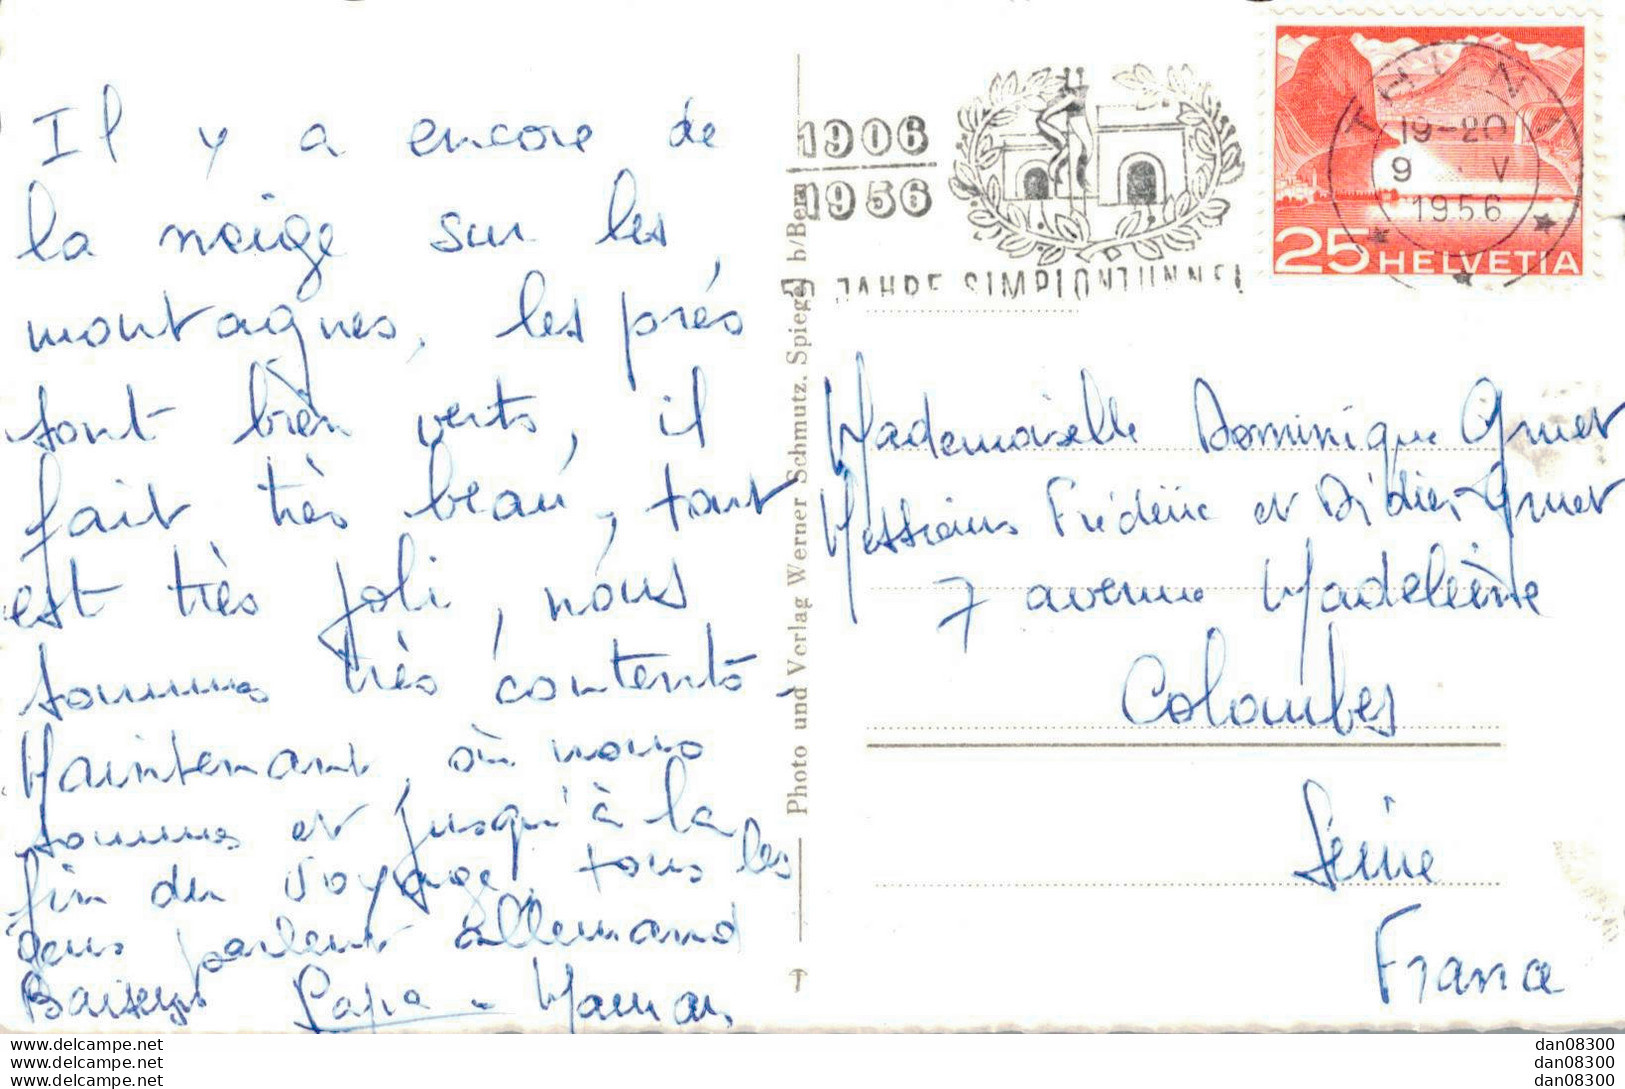 Il y a encore de
la neige sur les
montagnes, les prés
sont bien verts, il
fait très beau, tout
est très joli, nous
sommes très contents.
Maintenant, où nous
sommes et jusqu'à la
fin du voyage, tous les
gens parlent allemand
Baisers Papa - Maman
Photo und Verlag Werner Schmutz, Spiegel b/Bern
1906
1956
50 JAHRE SIMPLONTUNNEL
THUN 1
19-20
9 V
1956
25 HELVETIA
Mademoiselle Dominique Gruet
Messieurs Frédéric et Didier Gruet
7 avenue Madeleine
Colombes
Seine
France
dan08300
dan08300
dan08300
www.delcampe.net
www.delcampe.net
www.delcampe.net